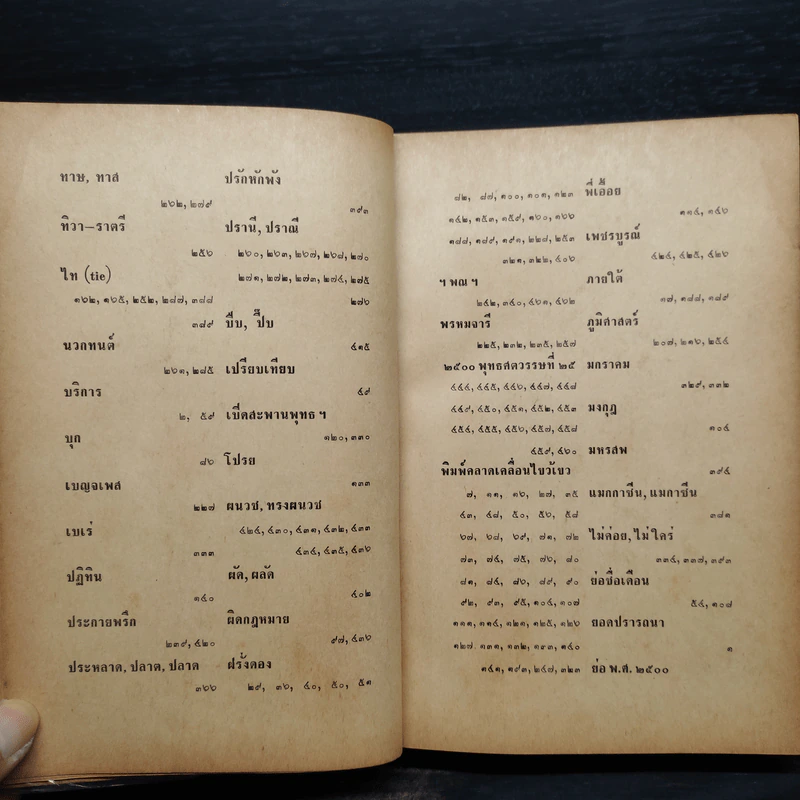 ทาษ, ทาส
๒๖๒, ๒๗๙
ทิวา–ราตรี
๒๕๖
ไท (tie)
๑๖๒, ๑๖๕, ๒๕๒, ๒๘๗, ๓๘๘
๓๘๙
นวกทนต์
๒๖๑, ๒๘๕
บริการ
๒, ๕๙
บุก
๘๖
เบญจเพส
๒๒๗
เบเร่
๓๓๓
ปฏิทิน
๑๔๐
ประกายพรึก
๒๓๙, ๔๒๐
ประหลาด, ปลาด, ปลาด
๓๖๖
ปรักหักพัง
๓๙๓
ปรานี, ปราณี
๒๖๐, ๒๖๓, ๒๖๗, ๒๖๘, ๒๗๐
๒๗๑, ๒๗๒, ๒๗๓, ๒๗๔, ๒๗๕
๒๗๖
บีบ, ปี๊บ
๔๑๕
เปรียบเทียบ
๔๙
เปิดสะพานพุทธ ฯ
๑๒๐, ๓๓๐
โปรย
๑๓๓
ผนวช, ทรงผนวช
๔๒๔, ๔๓๐, ๔๓๑, ๔๓๒, ๔๓๓
๔๓๔, ๔๓๕, ๔๓๖
ผัด, ผลัด
๔๐๒
ผิดกฎหมาย
๙๗, ๔๓๖
ฝรั่งดอง
๒๙, ๓๖, ๔๐, ๕๐, ๕๑
๘๒, ๘๗, ๑๐๐, ๑๐๑, ๑๒๓
๑๔๒, ๑๕๓, ๑๕๙, ๑๖๐, ๑๖๖
๑๘๘, ๑๘๙, ๑๙๑, ๒๒๘, ๒๕๓
๓๒๑, ๓๒๒, ๔๐๖
ฯ พณ ฯ
๒๔๒, ๓๔๐, ๔๖๑, ๔๖๒
พรหมจารี
๒๒๕, ๒๓๒, ๒๓๕, ๒๕๗
๒๕๐๐ พุทธสตวรรษที่ ๒๕
๔๔๔, ๔๔๕, ๔๔๖, ๔๔๗, ๔๔๘
๔๔๙, ๔๕๐, ๔๕๑, ๔๕๒, ๔๕๓
๔๕๔, ๔๕๕, ๔๕๖, ๔๕๗, ๔๕๘
๔๕๙, ๔๖๐
พิมพ์คลาดเคลื่อนไขว้เขว
๗, ๑๑, ๑๖, ๒๗, ๓๕
๔๓, ๔๘, ๕๐, ๕๖, ๕๘
๖๗, ๖๘, ๖๙, ๗๑, ๗๒
๗๓, ๗๔, ๗๕, ๗๖, ๘๐
๘๑, ๘๔, ๘๖, ๘๙, ๙๐
๙๒, ๙๓, ๙๕, ๑๐๔, ๑๐๗
๑๑๑, ๑๑๔, ๑๒๑, ๑๒๕, ๑๒๖
๑๒๗, ๑๓๑, ๑๓๒, ๑๓๓, ๑๔๐
๑๔๑, ๑๙๓, ๒๔๗, ๓๒๓
พี่เอื้อย
๑๑๔, ๑๔๖
เพชรบูรณ์
๔๒๔, ๔๒๕, ๔๒๖
ภายใต้
๑๗, ๑๘๘, ๑๘๙
ภูมิศาสตร์
๒๐๗, ๒๑๖, ๒๕๔
มกราคม
๓๒๙, ๓๓๒
มงกุฎ
๑๐๔
มหรสพ
๓๙๔
แมกกาซีน, แมกาซีน
๓๘๑
ไม่ค่อย, ไม่ใคร่
๓๓๔, ๓๓๗, ๓๙๓
ย่อชื่อเดือน
๕๔, ๑๐๘
ยอดปรารถนา
๑
ย่อ พ.ศ. ๒๕๐๐